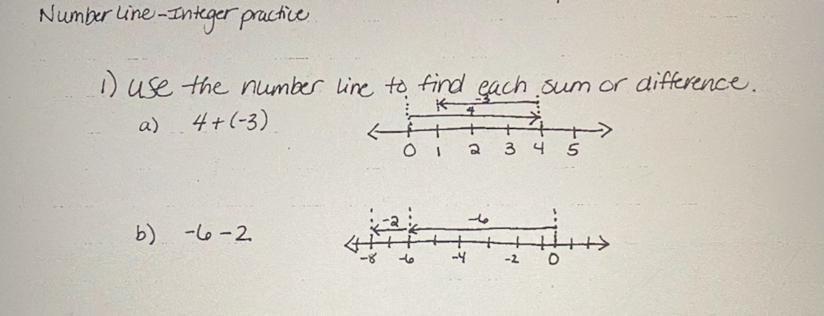 Number Line-Integer practice
1) use the number line to find each sum or difference.
-3
4
a) 4+(-3)
0 1 2 3 4 5
-2 -6
b) -6-2
-8 -6 -4 -2 0